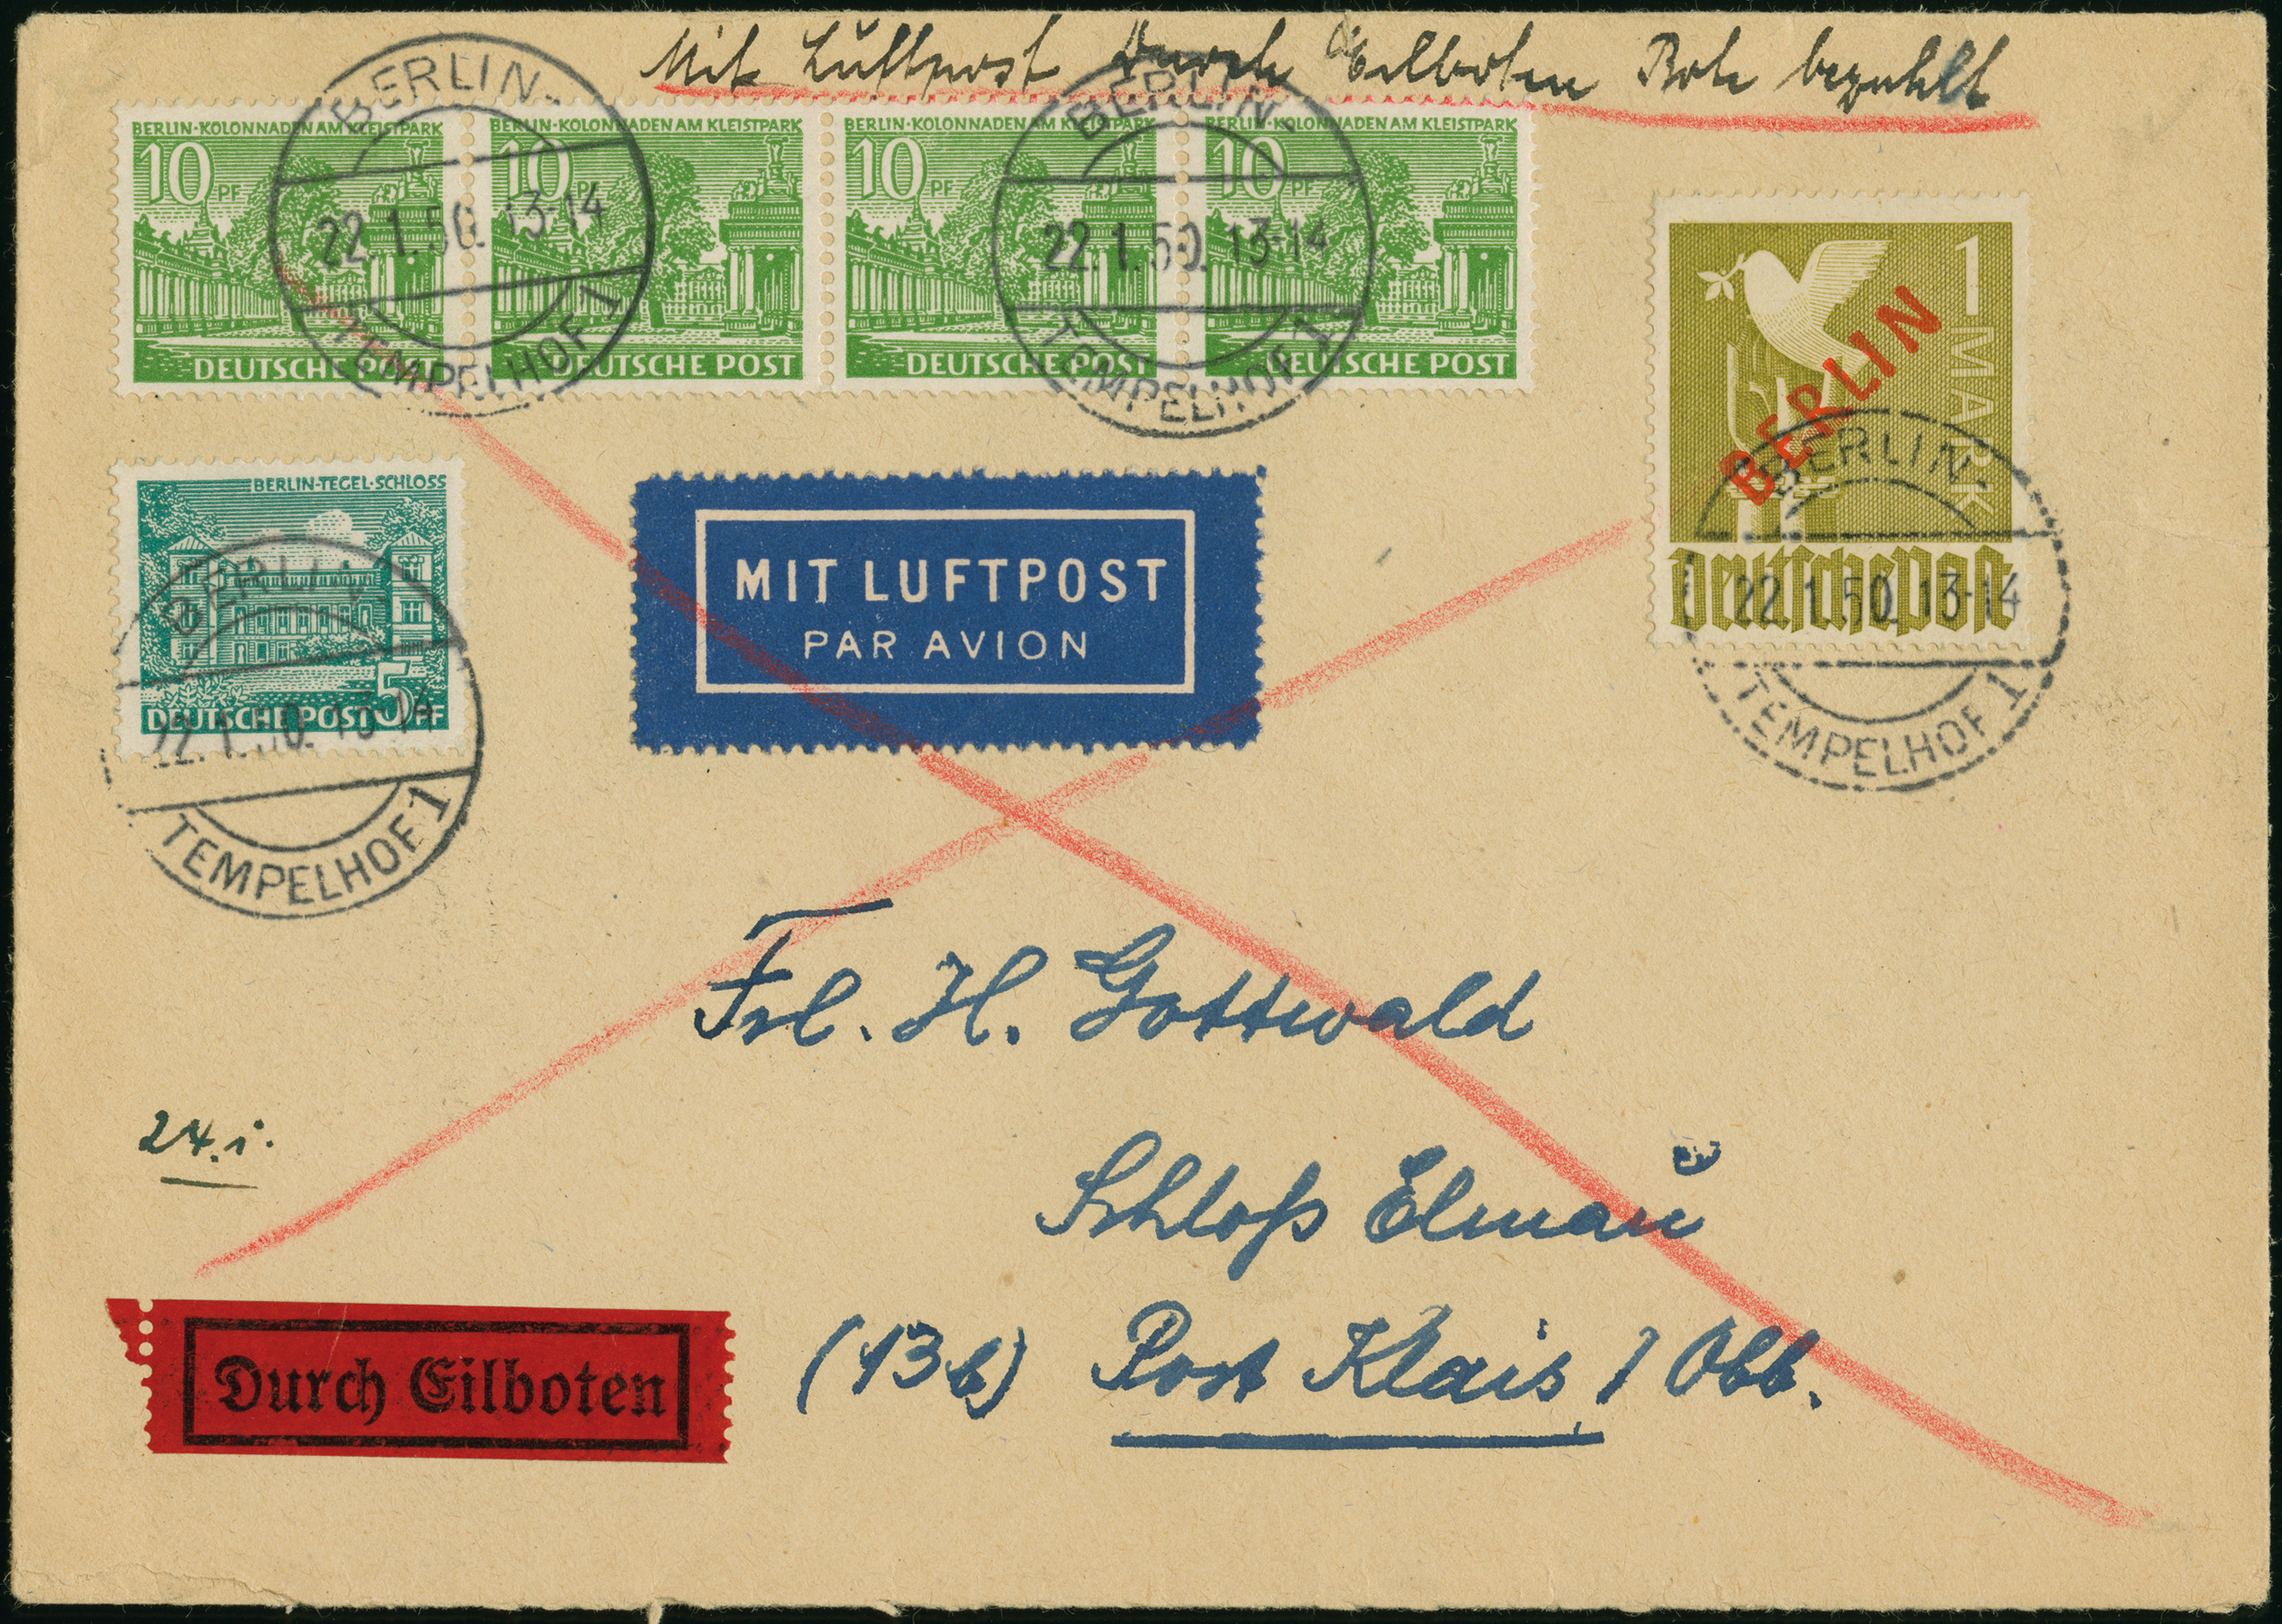 Mit Luftpost Durch Eilboten Bote bezahlt
BERLIN-KOLONNADEN AM KLEISTPARK
10 PF
DEUTSCHE POST
BERLIN-KOLONNADEN AM KLEISTPARK
10 PF
DEUTSCHE POST
BERLIN-KOLONNADEN AM KLEISTPARK
10 PF
DEUTSCHE POST
BERLIN-KOLONNADEN AM KLEISTPARK
10 PF
DEUTSCHE POST
BERLIN-
22.1.50. 13-14
TEMPELHOF 1
BERLIN-
22.1.50. 13-14
TEMPELHOF 1
1 MARK
BERLIN
Deutsche Post
BERLIN-
22.1.50. 13-14
TEMPELHOF 1
BERLIN-TEGEL-SCHLOSS
DEUTSCHE POST 5 PF
BERLIN-
22.1.50. 13-14
TEMPELHOF 1
MIT LUFTPOST
PAR AVION
Frl. H. Gottwald
24.1.
Schloß Elmau
(13b) Post Klais / Obb.
Durch Eilboten